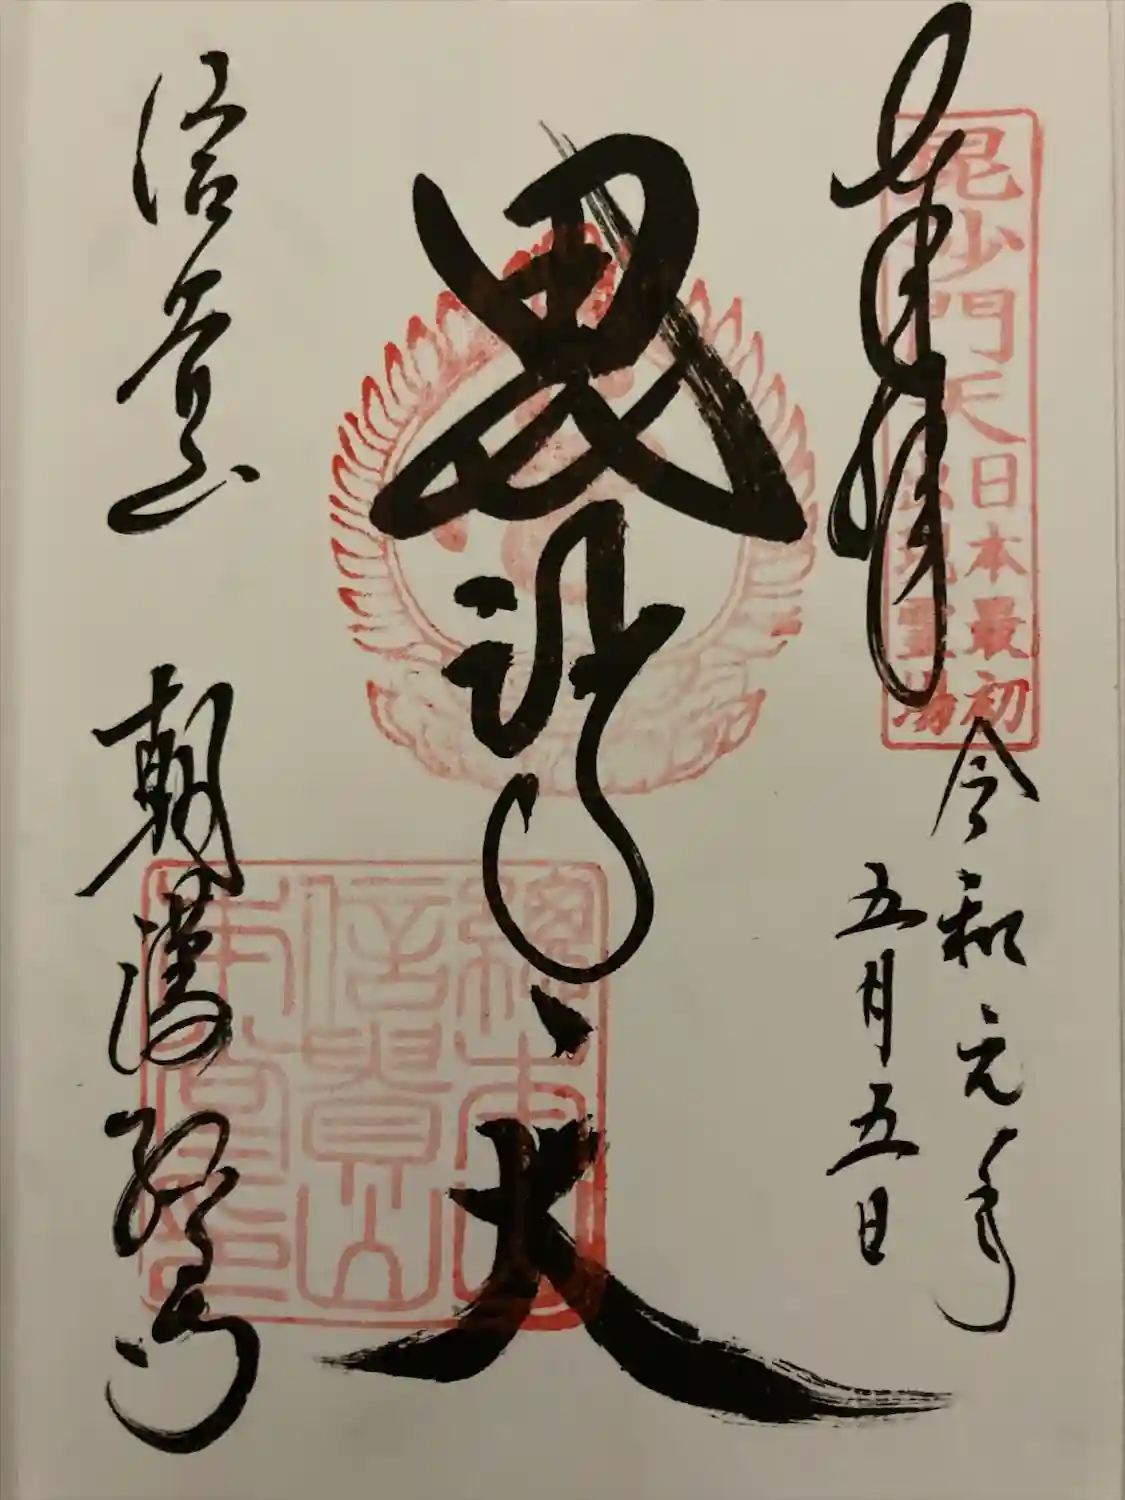 奉拝
毘沙門天
日本最初
出現霊場
令和元年
五月五日
毘沙門天
信貴山
朝護孫子寺
総本山
信貴山